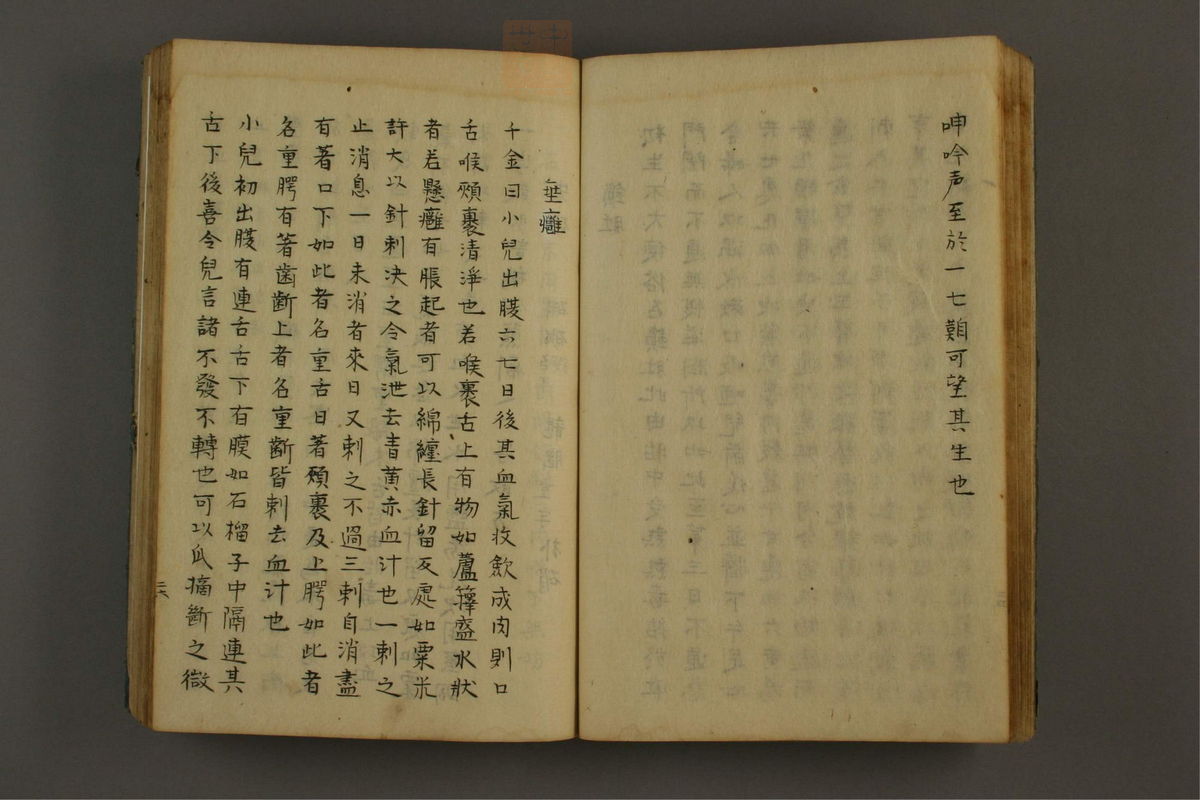 呻吟声至於一七難可望其生也
垂癰
千金曰小兒出腹六七日後其血氣收歛成肉則口
舌喉頰裹清淨也若喉裹舌上有物如蘆籜盛水狀
者若懸癰有脹起者可以綿纏長針留刃處如粟米
許大以針刺决之令氣泄去青黄赤血汁也一刺之
止消息一日未消者來日又刺之不過三刺自消盡
有著口下如此者名重舌日著頰裹及上腭如此者
名重腭有著齒斷上者名重斷皆刺去血汁也
小兒初出腹有連舌舌下有膜如石榴子中隔連其
古下後喜令兒言諸不發不轉也可以爪摘斷之微